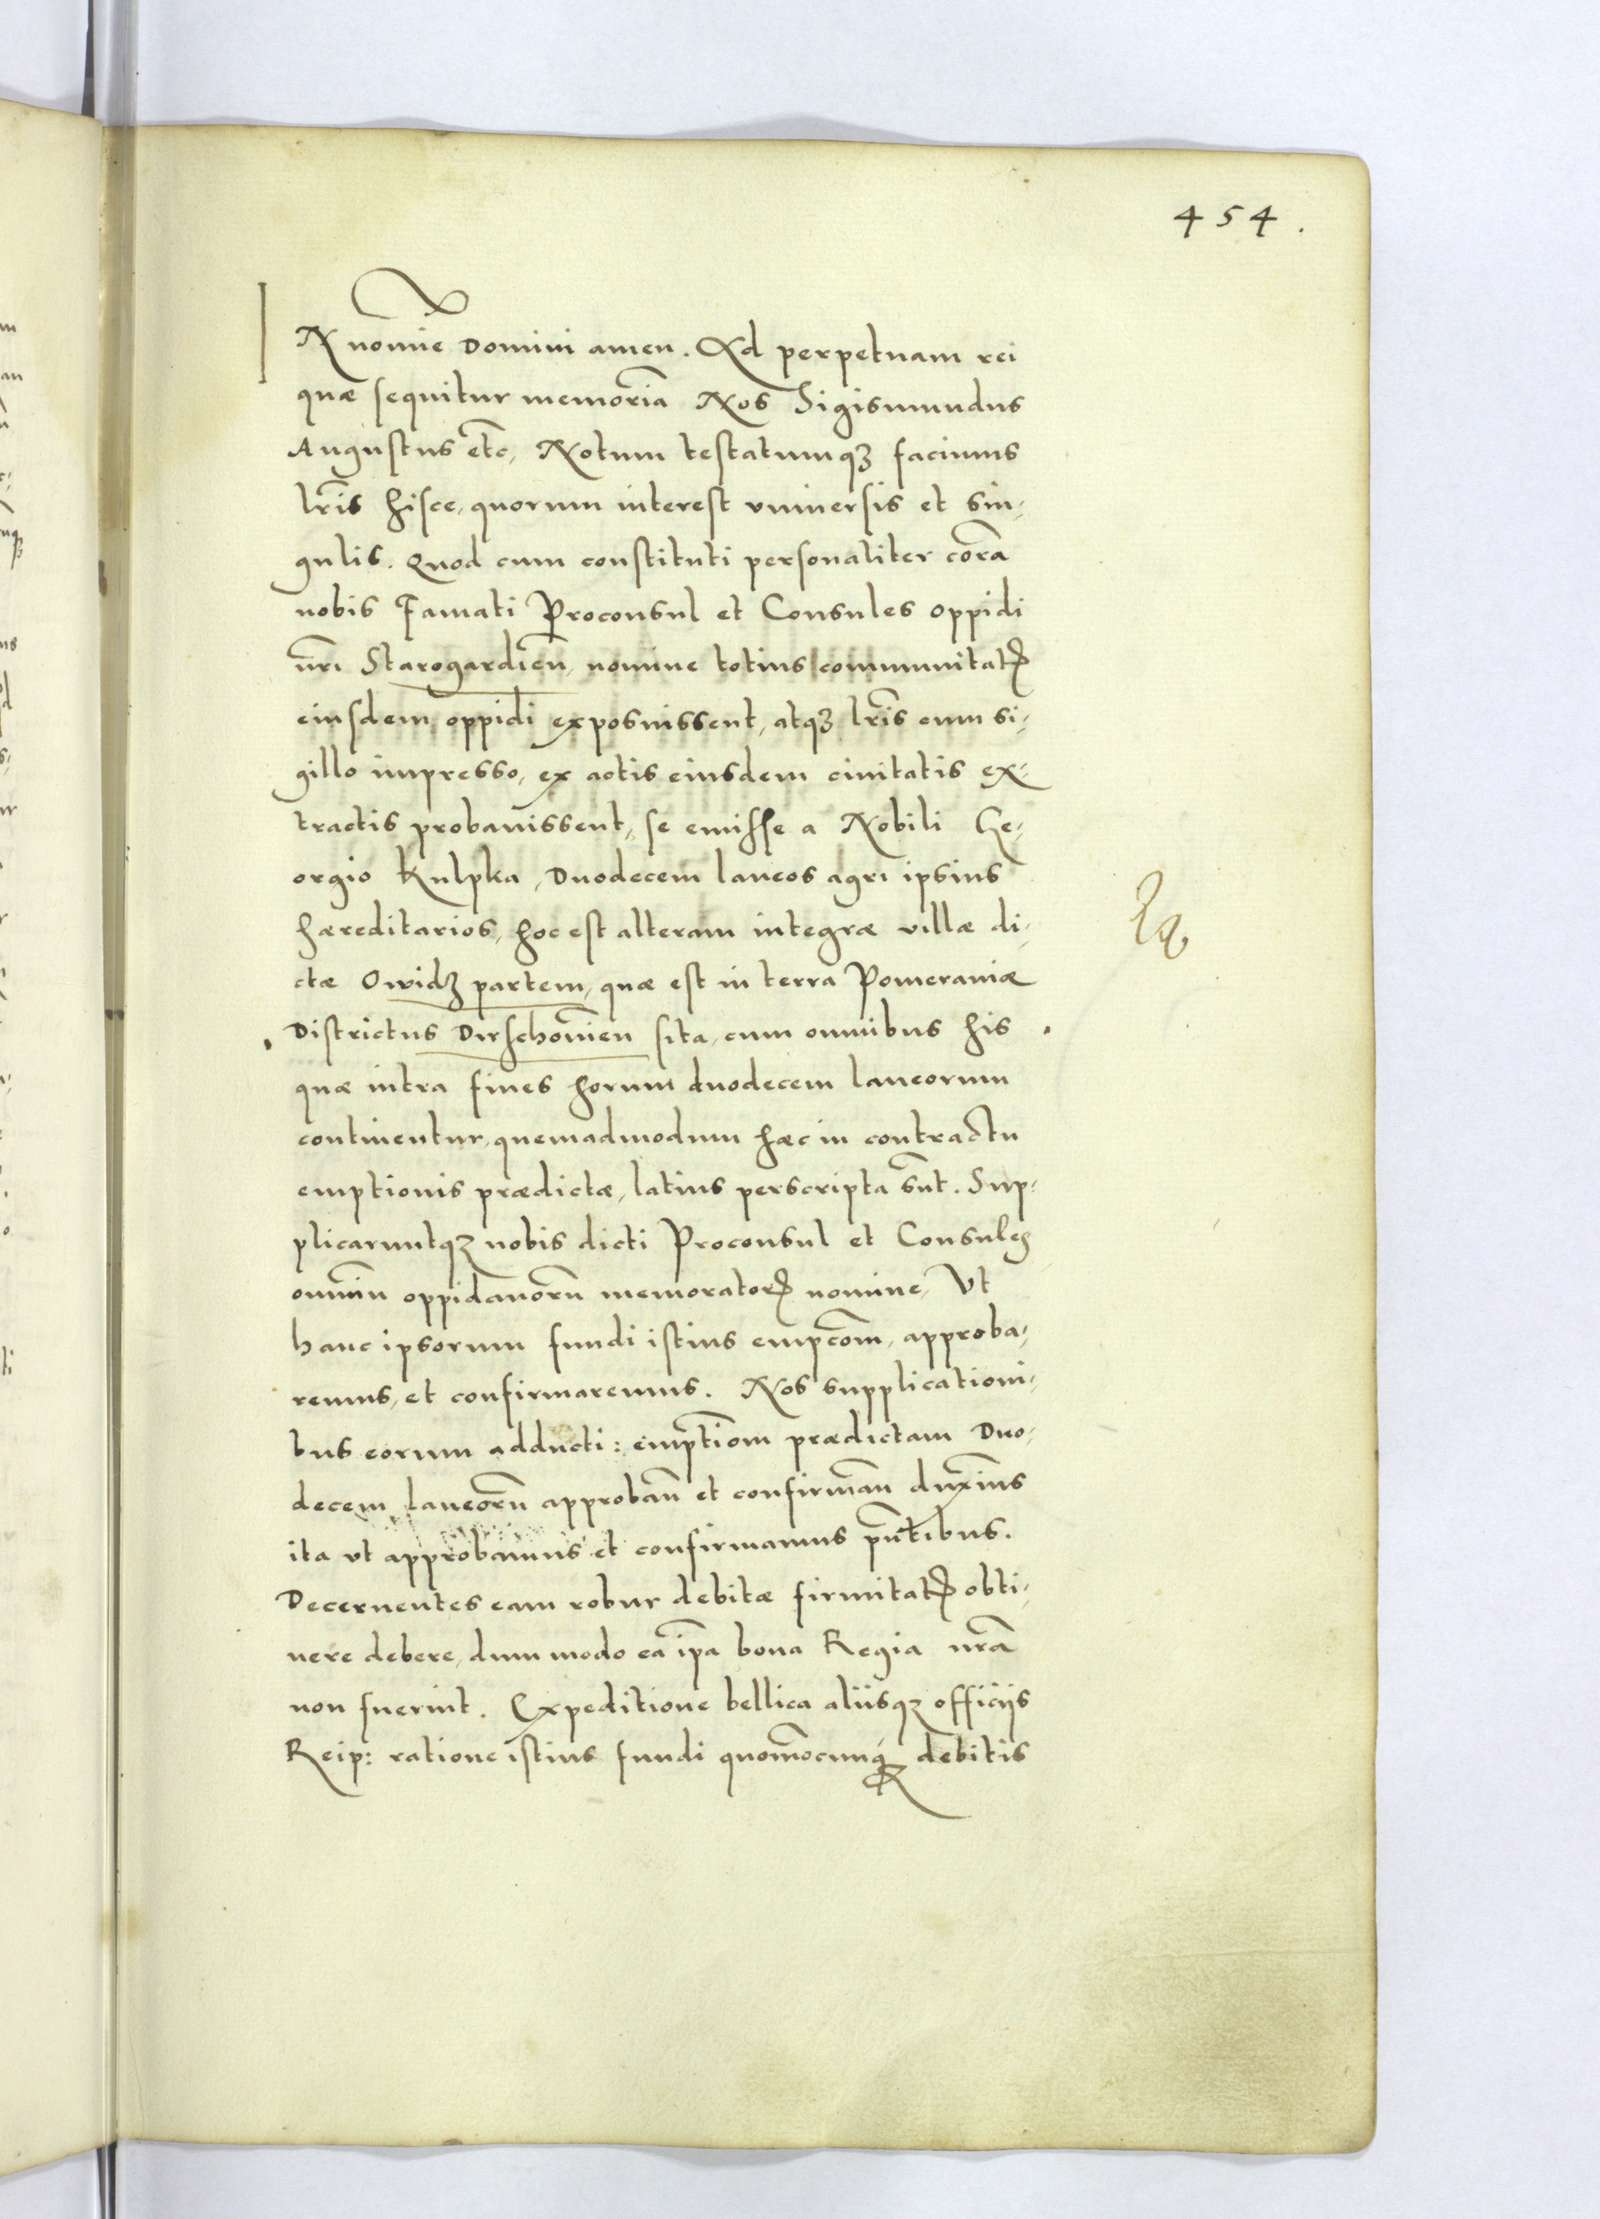 454.
IN nomīe Domini amen. Ad perpetuam rei
quæ sequitur memoriā Nos Sigismundus
Augustus etc, Notum testatumqꝫ facimus
lrīs hisce, quorum interest vniuersis et sin,
gulis. Quod cum constituti personaliter corā
nobis Famati Proconsul et Consules oppidi
nrī Starogardien̄, nomine totius communitatꝭ
eiusdem oppidi exposuissent, atqꝫ lrīs cum si,
gillo impresso, ex actis eiusdem ciuitatis ex,
tractis probauissent, se emisse a Nobili Ge,
orgio Kulpka, Duodecem laneos agri ipsius
hæreditarios, hoc est alteram integræ villæ di,
ctæ Owidz partem, quæ est in terra Pomeraniæ
Districtus Dirschouien̄ sita, cum omnibus his
quæ intra fines horum duodecem laneorum
continentur, quemadmodum hæc in contractu
emptionis prædictæ, latius perscripta sūt. Sup,
plicaruntqꝫ nobis dicti Proconsul et Consules
omniū oppidanorū memoratorꝭ nomine, Vt
hanc ipsorum fundi istius empcōm, approba,
remus, et confirmaremus. Nos supplicationi,
bus eorum adducti: emptiōm prædictam Duo,
decem laneorū approban̄ et confirman̄ duximus
ita vt approbamus et confirmamus pn̄tibus.
Decernentes eam robur debitæ firmitatꝭ obti,
nere debere, dum modo ea ip̄a bona Regia nrā
non fuerint. Expeditione bellica aliisqꝫ officijs
Reip: ratione istius fundi quomōcunqꝫ debitis